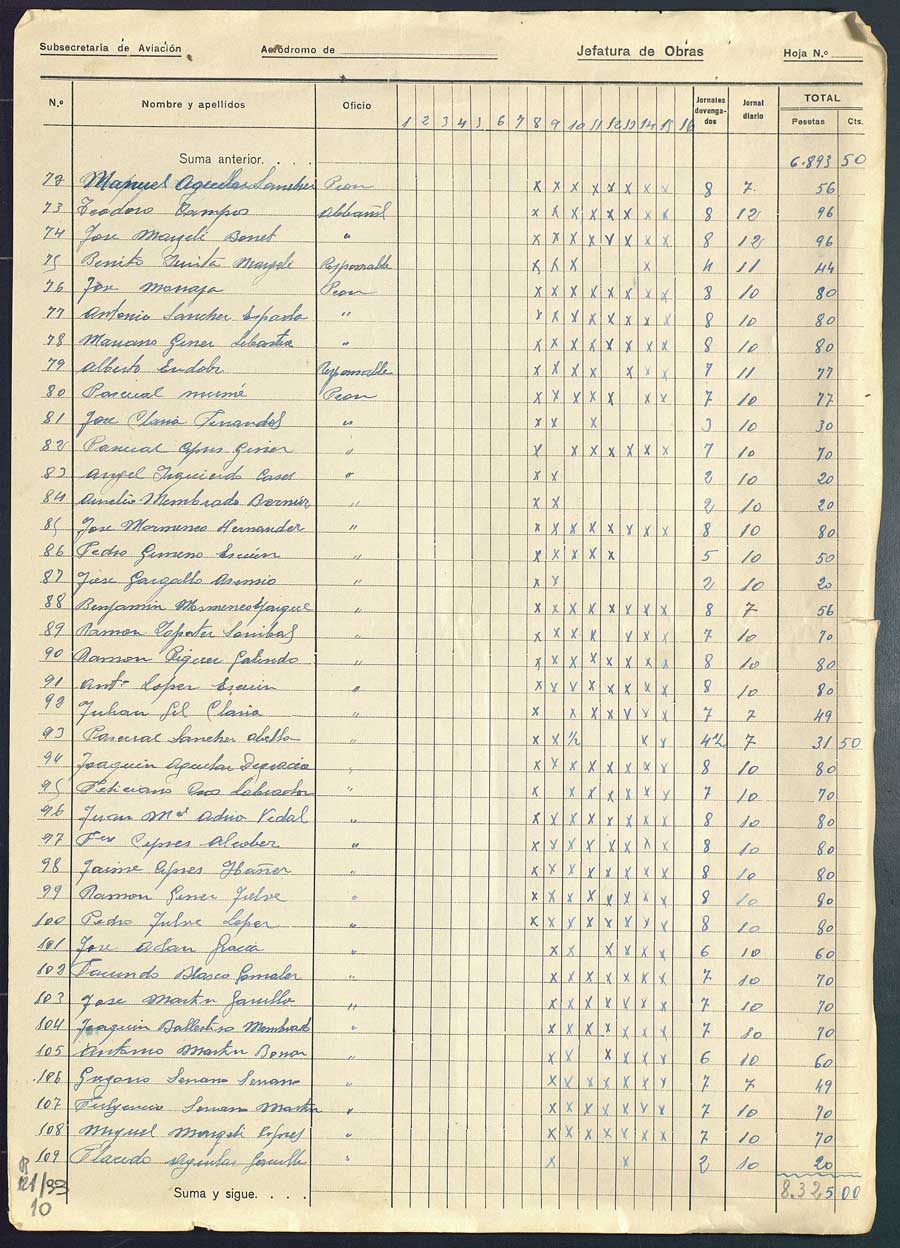 Subsecretaria de Aviación Aeródromo de Jefatura de Obras Hoja N.º
N.º Nombre y apellidos Oficio 1 2 3 4 5 6 7 8 9 10 11 12 13 14 15 16 Jornales devenga-dos Jornal diario TOTAL Pesetas Cts.
Suma anterior. . . . 6.893 50
72 Manuel Aguilar Sancher Peon x x x x x x x x 8 7 56
73 Teodoro Campos Albbañil x x x x x x x x 8 12 96
74 Jose Margeli Bonet " x x x x x x x x 8 12 96
75 Benito Margeli Responsable x x x x 4 11 44
76 Jose Peon x x x x x x x x 8 10 80
77 Antonio Sancher Espada " x x x x x x x x 8 10 80
78 Mariano Giner Sebastia " x x x x x x x x 8 10 80
79 Alberto Responsable x x x x x x x 7 11 77
80 Pascual Peon x x x x x x x 7 10 77
81 Jose Claria Ferrandos " x x x 3 10 30
82 Pascual Giner " x x x x x x x 7 10 70
83 Angel Izquierdo Cases " x x 2 10 20
84 Amelio Membrado " x x 2 10 20
85 Jose Mormeneo Hernander " x x x x x x x x 8 10 80
86 Pedro Gimeno Escuin " x x x x x 5 10 50
87 Jose Gargallo Asensio " x x 2 10 20
88 Benjamin Mormeneo " x x x x x x x x 8 7 56
89 Ramon Zapater " x x x x x x x 7 10 70
90 Ramon Piquer Galindo " x x x x x x x x 8 10 80
91 Antº Loper Escuin " x x x x x x x x 8 10 80
92 Julian Gil Claria " x x x x x x x 7 7 49
93 Pascual Sancher Abella " x x ½ x x 4½ 7 31 50
94 Joaquin Aguilar " x x x x x x x x 8 10 80
95 Feliciano Labrador " x x x x x x x 7 10 70
96 Juan Mª Vidal " x x x x x x x x 8 10 80
97 Alcober " x x x x x x x x 8 10 80
98 Jaime Ibañer " x x x x x x x x 8 10 80
99 Ramon Giner Julve " x x x x x x x x 8 10 80
100 Pedro Julve Loper " x x x x x x x x 8 10 80
101 Jose Adan Gracia " x x x x x x 6 10 60
102 Facundo Blasco Gonzaler " x x x x x x x 7 10 70
103 Jose Martin " x x x x x x x 7 10 70
104 Joaquin Membrado " x x x x x x x 7 10 70
105 Antonio Martin " x x x x x x 6 10 60
106 Gregorio Serrano Serrano " x x x x x x x 7 7 49
107 Fulgencio Serrano Martin " x x x x x x x 7 10 70
108 Miguel Margeli " x x x x x x x 7 10 70
109 Placido Aguilar " x x 2 10 20
Suma y sigue. . . . 8.325 00
R
121/93
10